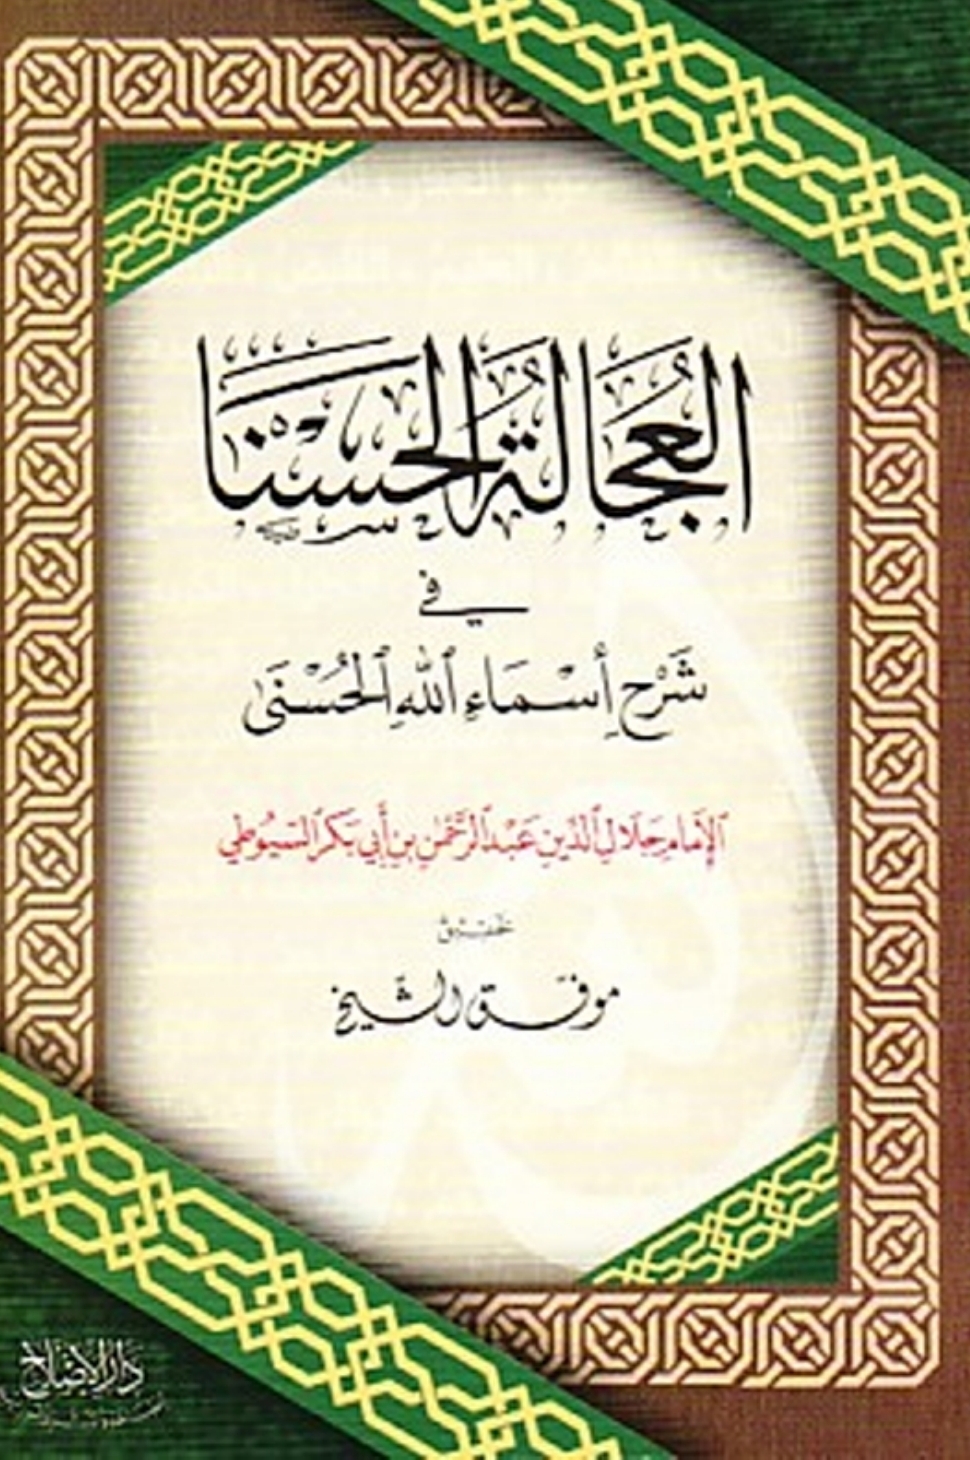 العُجَالَةُ الحَسْنَا
في
شَرْحِ أَسْمَاءِ ٱللهِ ٱلْحُسْنَى
الإمام جلال الدين عبد الرحمن بن أبي بكر السيوطي
تحقيق
موفق الشيخ